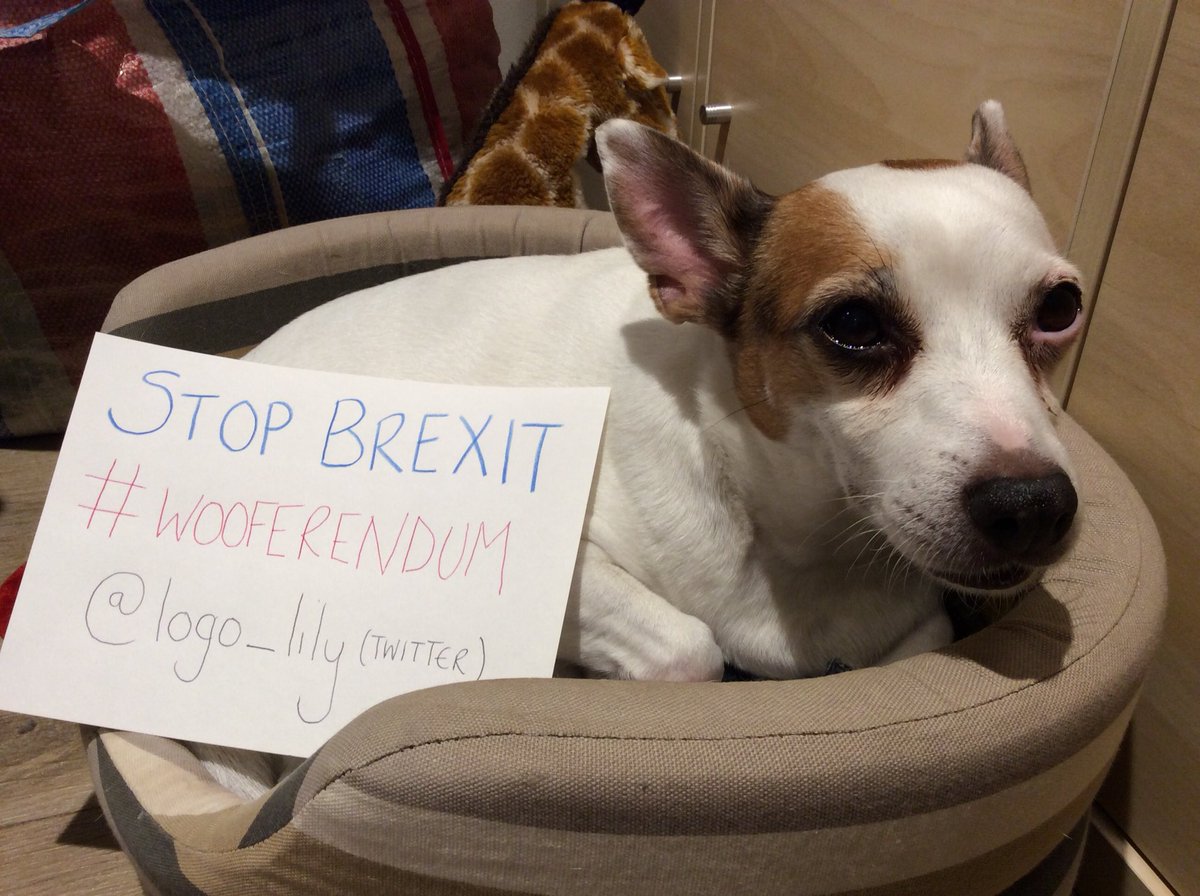 STOP BREXIT
#WOOFERENDUM
@logo_lily (TWITTER)